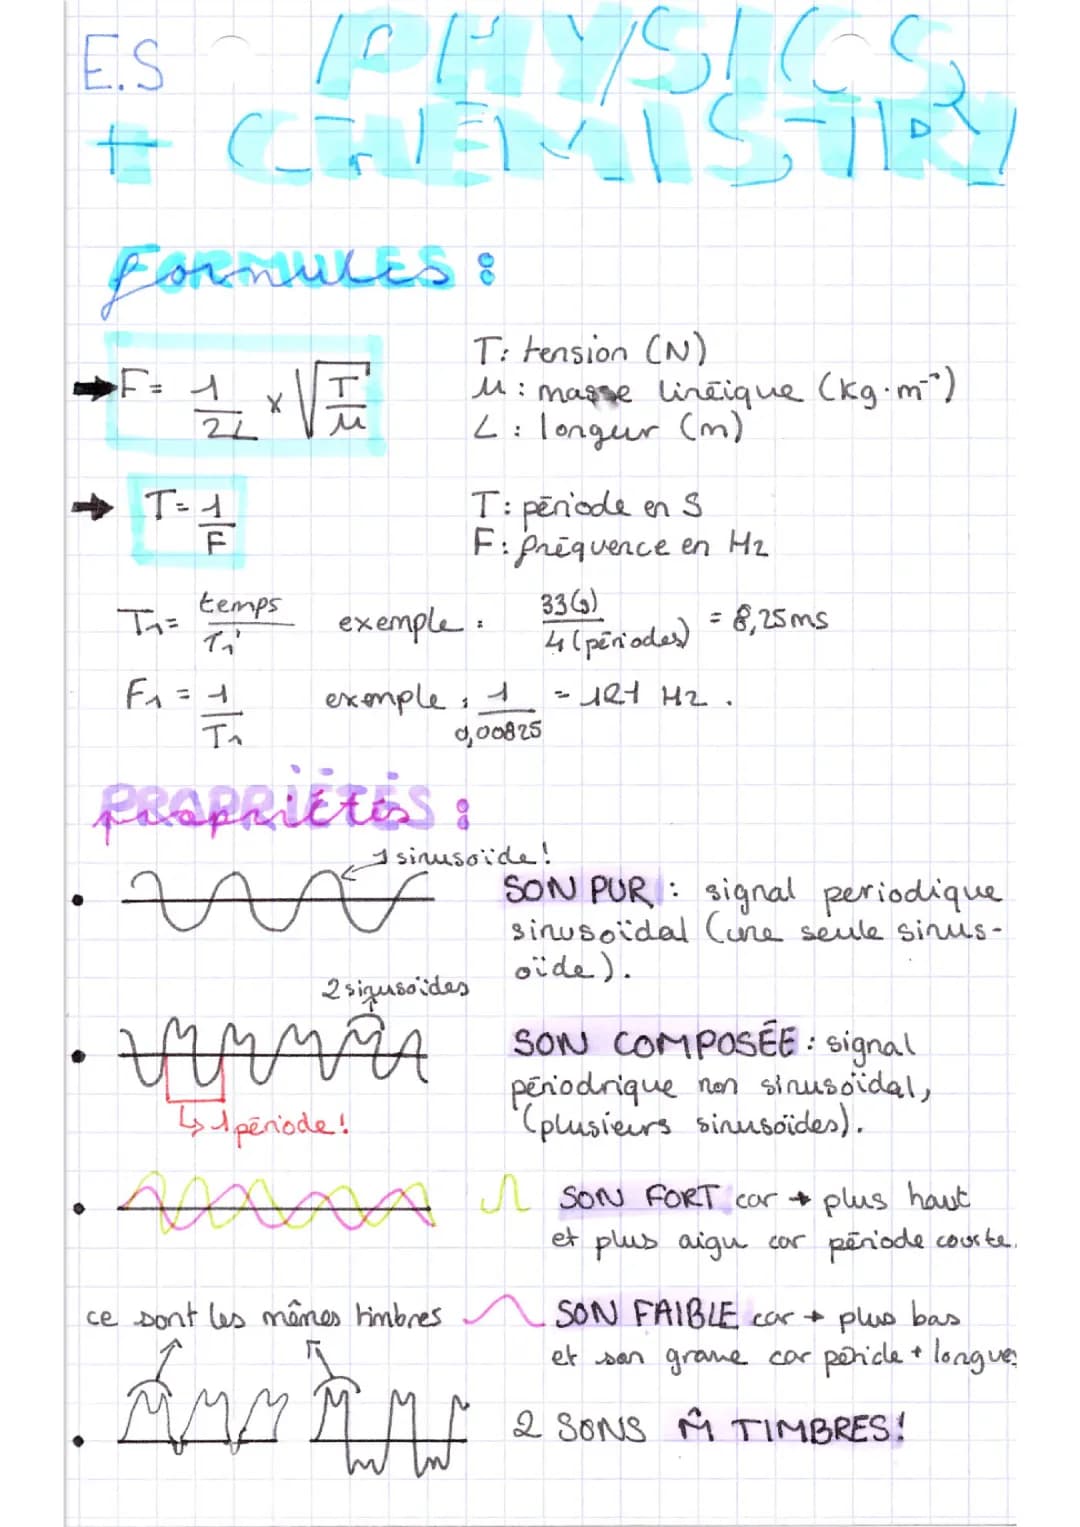 E.S PHYSICS
+ CHEMISTRY
FORMULES :
formules
F = 1/2L × √T/μ
T : tension (N)
μ : masse linéique (kg·m⁻¹)
L : longeur (m)
T = 1/F
T : période en S
F : fréquence en Hz
T₁ = temps/T₁' exemple : 33(s)/4 (périodes) = 8,25 ms
F₁ = 1/T₁ exemple : 1/0,00825 = 121 Hz .
PROPRIÉTÉS :
propriétés
1 sinusoïde !
SON PUR : signal periodique
sinusoïdal (une seule sinus-
oïde).
2 sinusoïdes
SON COMPOSÉE : signal
périodrique non sinusoïdal,
(plusieurs sinusoïdes).
↳ 1 période !
SON FORT car → plus haut
et plus aigu car période courte.
ce sont les mêmes timbres
SON FAIBLE car → plus bas
et son grave car péride + longue
2 SONS M̂ TIMBRES !